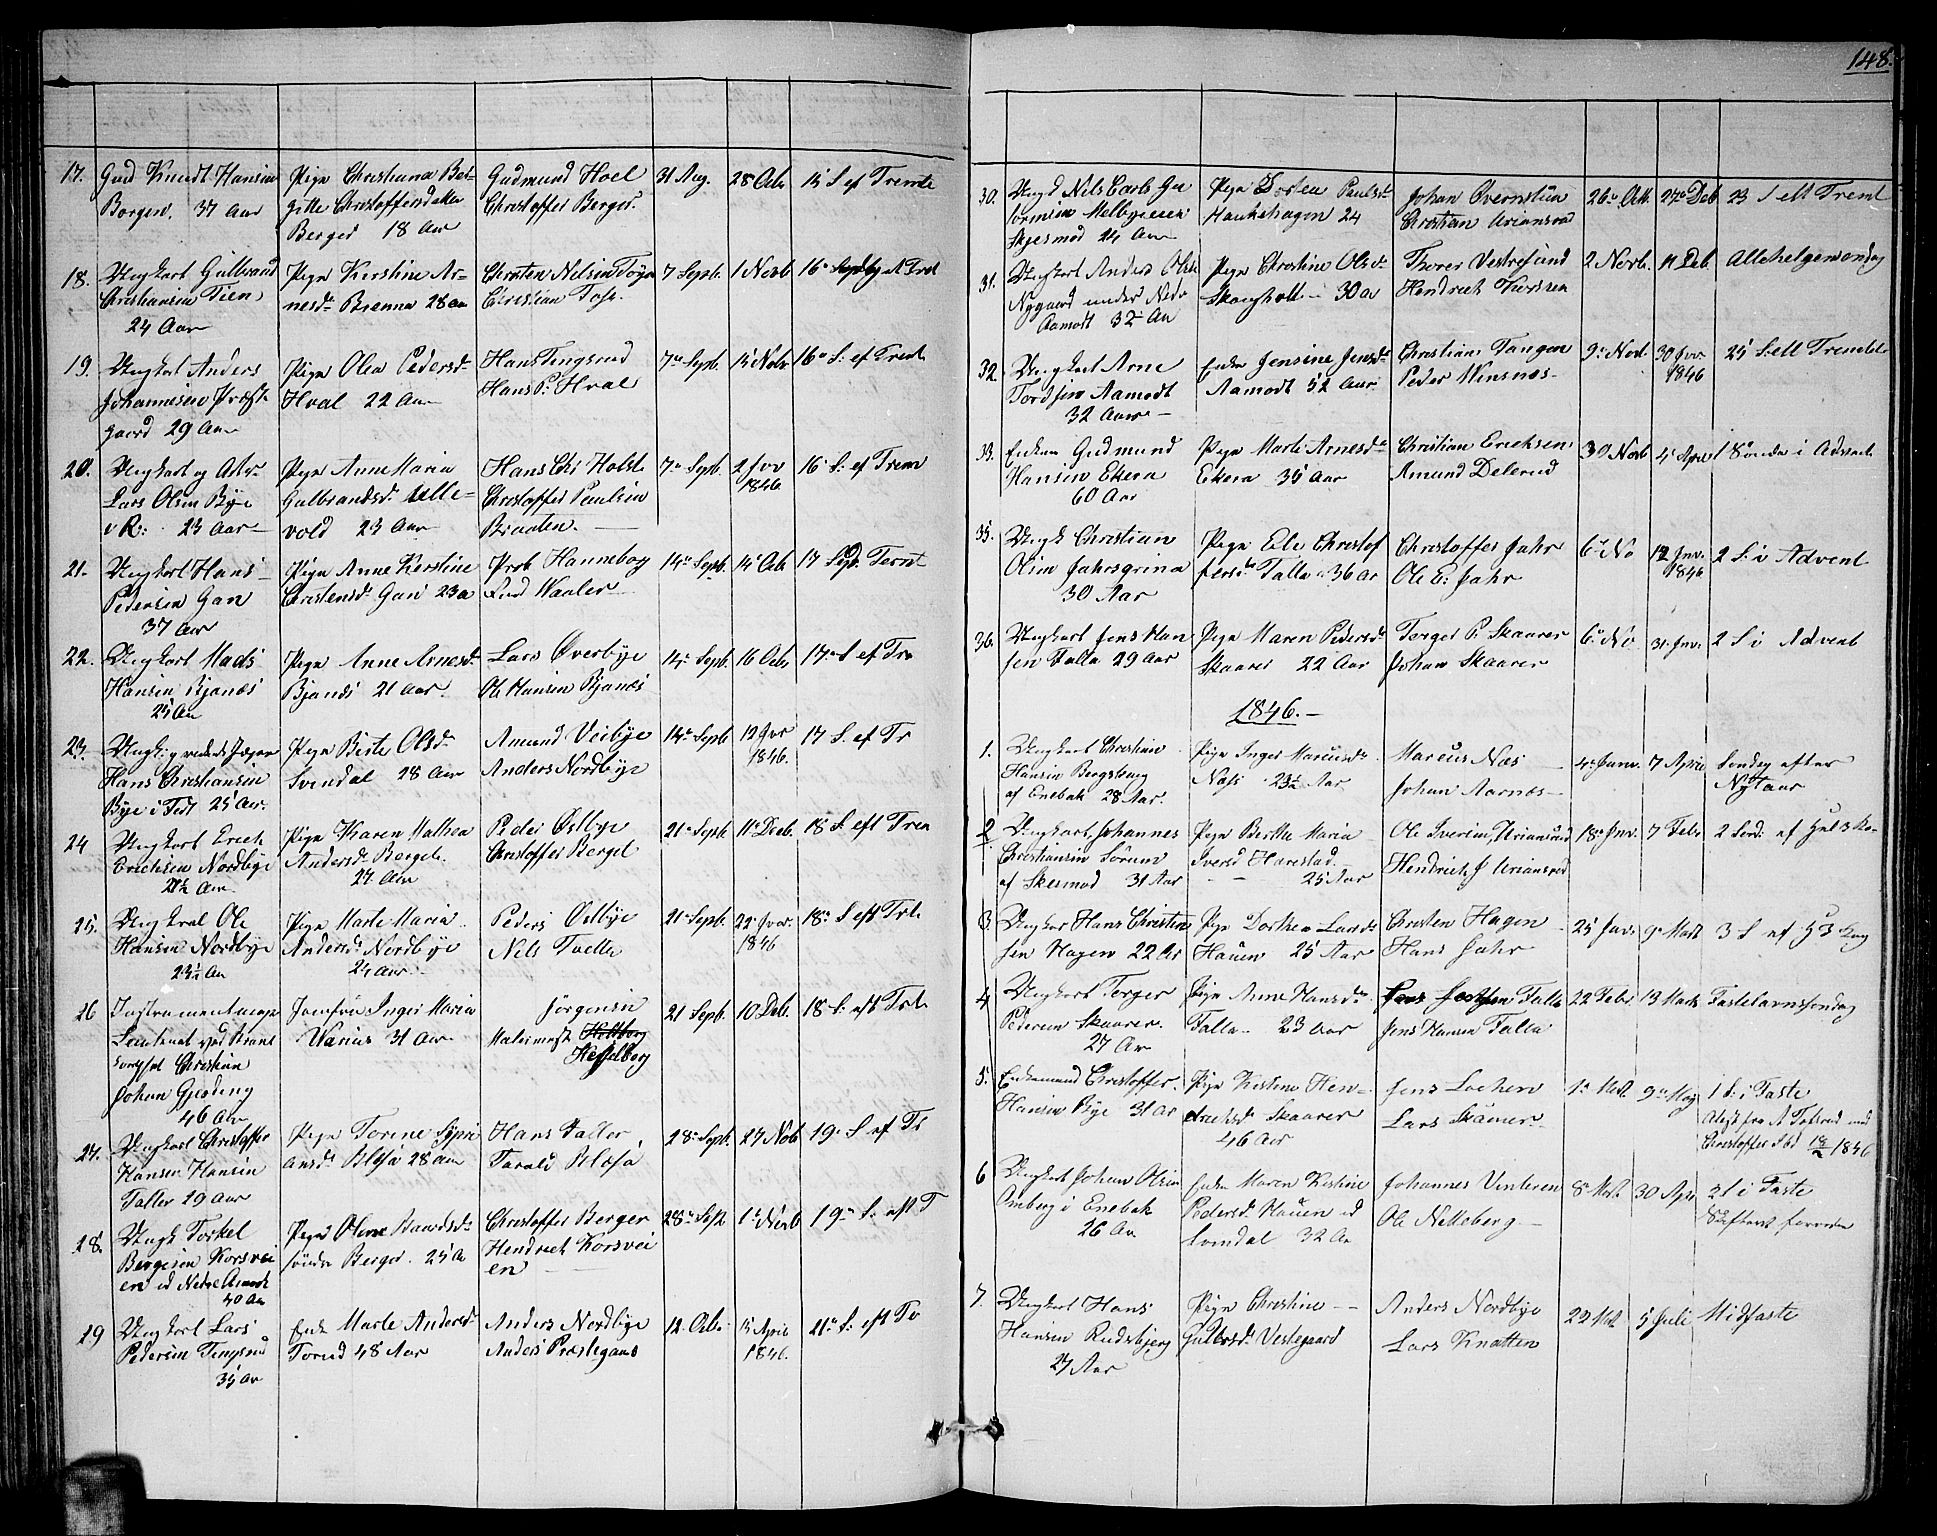 148.
17. Gmd Knudt Hansen
Borgen. 37 Aar
Pigen Christiana Bir-
gitte Christoffersdatter
Berger 18 Aar
Gudmund Hoel
Christoffer Berger.
31 Aug.
28 Octr
15 S. ef Tremte
18. Ungkarl Gulbrand
Christiansen Tien
24 Aar
Pigen Kirstine Ar-
nesdr Brenna 28 Aar
Christen Nelsen Toyen
Christian Tofs.
7 Septb.
1 Novb
16 Søndag et Tret
19. Ungkarl Anders
Johannesen Præste
gaard 29 Aar
Pigen Olea Pedersdr
Hval 22 Aar
Hans Tingsrud
Hans P. Hval
7de Septb.
15 Nobr
16de S. ef Tremt
20. Ungkarl og
Lars Olsen Bye
v R. 23 Aar
Pigen Anne Maria
Gulbrandsdr Ulle-
vold 23 Aar
Hans Chr Holste
Christoffer Paulsen
Braaten.
7de Septb.
2 Jvr
1846
16de S. ef Trem
21. Ungkarl Hans
Pedersen Gan
37 Aar
Pigen Anne Kirstine
Christensdr Gan 23 a
Prob Hanneborg
Lind Waaler
14de Septb.
15 Octr
17 Sept. Ternt
22. Ungkarl Mads
Hansen Bjanæs
25 Aar
Pigen Anne Arnesdr
Bjanæs 21 Aar
Lars Øverbye
Ole Hansen Bjanæs
14de Septb.
16 Octr
17de S ef Tre
23. Ungk. g
Hans Christiansen
Bye i Fedt 25 Aar.
Pigen Birte Olsdr
Svendal 28 Aar
Amund Veibye
Anders Nordbye
14de Septb
12 Jvr
1846.
17 S. ef Tr
24 Ungkarl Erich
Erichsen Nordbye
21½ Aar
Pigen Karen Mathea
Andersdr Bergel.
27 Aar
Peder Østbye
Christoffer Bergel
21de Septb
11te Decb.
18 S. eft Tren
25. Ungkarl Ole
Hansen Nordbye
23½ Aar
Pigen Marte Maria
Andersdr Nordbye
24 Aar
Peders Østbye
Nels Tvette
21de Septb.
22de Jvr.
1846
18de S eft Tret.
26 Instrumentmager
Lieutenant ved
Christian
Johan Gjeding
46 Aar
Jomfru Inger Maria
Warius 31 Aar
Jørgensen
Malermest Heltborg
Hesselberg
21 Septb.
10 Deb.
18 S. eft Tret.
27. Ungkarl Christoffer
Hansen Hansen
Faller 29 Aar
Pigen Torine Sypri
ansdr Blesa 28 Aar
Hans Faller
Tarald Blæsa
28de Septb.
27 Nob
19de S ef Tr
28. Ungk Torkel
Bergesen Korsvei
en ed Nedre Aamodt
40 Aar
Pigen Olene Aaradsdr
søndre Berger. 25 Ar
Christoffer Berger
Hendrich Korsvei
en
28de Sept
1te Novb
19de S. eft T
29 Ungkarl Lars
Pedersen Tingsrud
35 Ar
Enke Marte Andersdr
Torud 48 Aar
Anders Nordbye
Anders Præstegaard
12 Octbr
15 April
1846.
21de S. eft Tr
30. Ungk Nels Carls Gu
tormsen Melbyeieien
Skjesmod 24 Aar
Pigen Dortea Paulsdr
Haukehagen 24
Johan Overnstuen
Christian Uriansrud
26de Octb.
27de Deb
23 S. eft Tremt
31. Ungkarl Anders Olsen
Nygaard under Nedre
Aamodt 32½ Aar
Pigen Christine Olsdr
Skougholt 30 a
Thorer Vestresund
Hendrich Tiersen
2 Novb.
11 Deb.
Allehelgensondag
32. Ungkarl Arne
Tordsen Aamodt
32 Aar
Enke Jensine Jensdr
Aamodt 52 Aar
Christian Tangen
Peder Winsnæs
9de Novb.
30 Jvr
1846
25 S: eft Tremte
33. Enkem Gudmund
Hansen Ekera
60 Aar
Pigen Marte Arnesdr
Ekera 35 Aar
Christian Ericksen
Amund Delerud
30 Novb
4 April
1 Sønda i Advent
35. Ungk Christian
Olsen Jahrsgrina
30 Aar
Pigen Ele Christof
fersdr Talla 36 ar
Christoffer Jahr
Ole E. Jahr
6te No
12 Jnv.
1846
2 S. i Advent
36. Ungkarl Jens Han
sen Falla 29 Aar
Pigen Maren Pedersdr
Skaarer 22 Aar
Terger P. Skaarer
Johan Skaarer
6te No
31 Jnv.
2 S i Advent
1846.
1. Ungkarl Christian
Hansen Bergskaug
af Enebak 28 Aar.
Pigen Inger Marcusdr
Næs 23½ Aar
Marcus Næs
Johan Aarnæs
4de Janv.
7 April
Søndag efter
Nytaar
2 Ungkarl Johannes
Christiansen Sørum
af Skesmod 31 Aar
Pigen Berthe Maria
Iversd Harestad.
25 Aar
Ole Iversen Uriansrud
Hendrich J Uriansrud
18de Jnv.
7 Febr
2 Sønd. ef Hel 3 Ko-
3. Ungkar Hans Christen
sen Hagen 22 Ar
Pigen Dorthea Larsdr
Hauen 25 Aar
Christen Hagen
Hans Jahr
25 Jnv.
9de Mart
3 S ef H 3 Kong
4 Ungkarl Terger
Pedersen Skaarer.
27 Ar
Pigen Anne Hansdr
Falla 23 Aar
Falla
Jens Hansen Falla
22 Febr
13 Marts
Fastelavnssøndag
5. Enkemand Christoffer
Hansen Bye 31 Ar
Pigen Kistine Hen-
drichsd Skaarer
46 Aar
Jens Lochen
Lars Skamer
1te Mart
9de Maj
1 S. i Faste
Christoffer 18/2 1846
6 Ungkarl Johan Olsen
Amberg i Enebak
26 Ar
Enke Maren Kistine
Pedersdr Hauen ed
Svendal 32 Aar
Johannes Vinteren
Ole Nelleberg
8de Mart
30 Apr
2 S i Faste
Skiftet forevist
7. Ungkarl Hans
Hansen Rudsbjerg
27 Aar
Pigen Christine
Gulersdr Vestegaard
Anders Nordbye
Lars Knatten
22 Mart
5 Juli
Midfaste